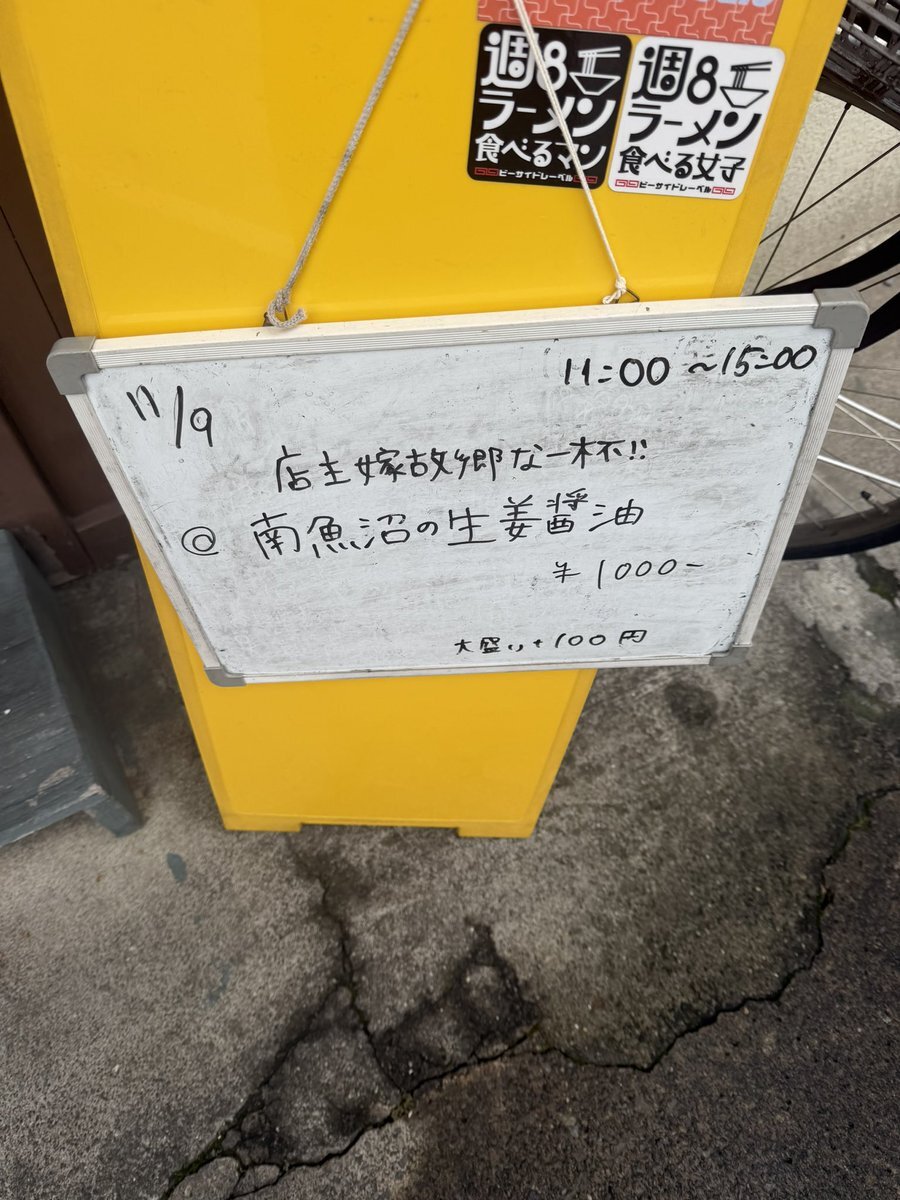 週8
ラーメン
食べるマン
ビーサイドレーベル
週8
ラーメン
食べる女子
ビーサイドレーベル
11/9
11:00～15:00
店主嫁故郷な一杯!!
◎ 南魚沼の生姜醤油
¥1000-
大盛り+100円